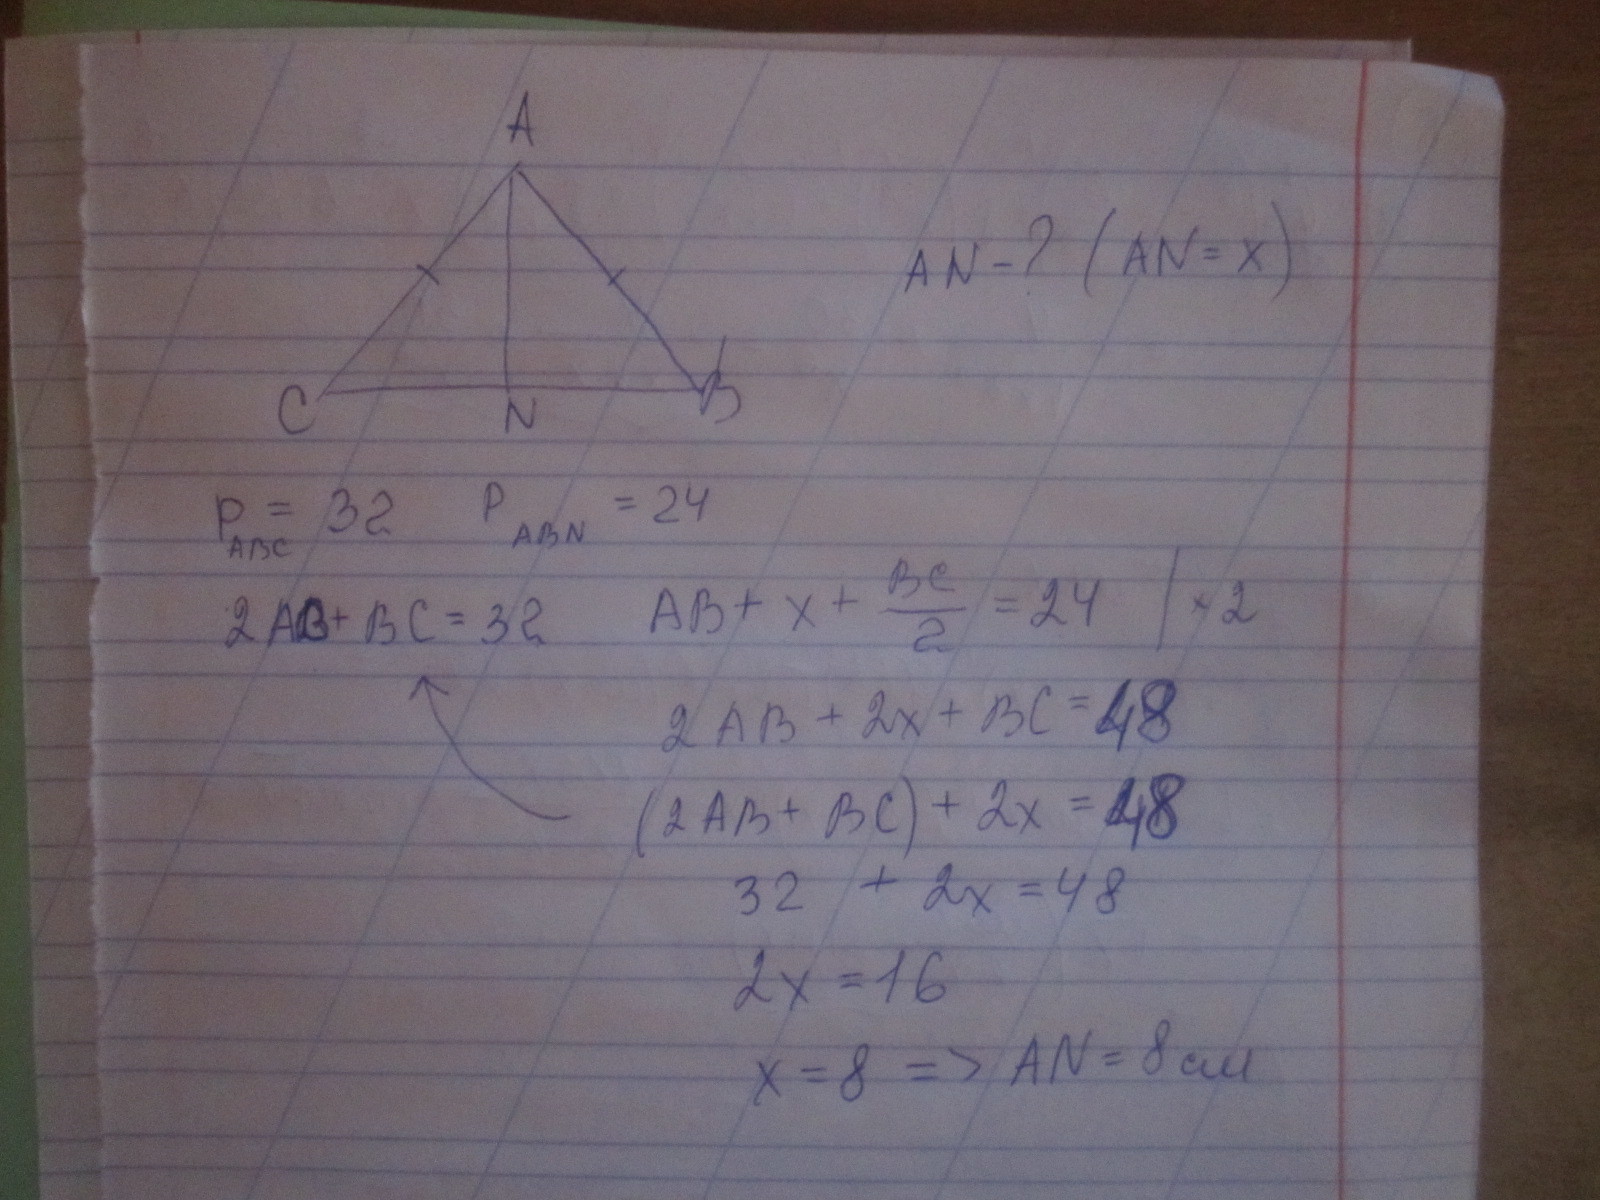 A
AN - ? (AN = x)
C N B
P ABC = 32 P ABN = 24
2AB + BC = 32 AB + x + BC/2 = 24 | × 2
2AB + 2x + BC = 48
(2AB + BC) + 2x = 48
32 + 2x = 48
2x = 16
x = 8 => AN = 8 см